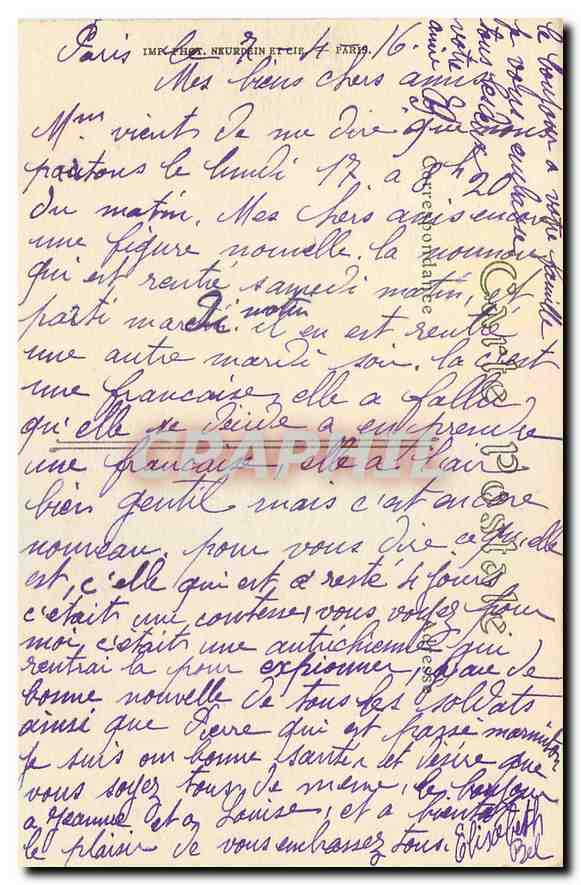 IMP. PHOT. NEURDEIN ET CIE. PARIS.
Paris le 7 4 16.
Mes biens chers amis
Mme vient de me dire que nous
partons le lundi 17 a 8h 20
du matin. Mes chers amis encore
une figure nouvelle. la nounou
qui est rentré samedi matin, et
parti mardi matin il en est rentré
une autre mardi soir. la c'est
une francaise, elle a fallu
qu'elle se décide a en prendre
une francaise, elle a l'air
bien gentil mais c'est encore
nouveau. pour vous dire ce qu'elle
est, c'elle qui est resté 4 jours
c'était une contesse, vous voyez pour
moi c'était une autrichienne qui
rentrai la pour expionner, j'ai de
bonne nouvelle de tous les soldats
ainsi que Pierre qui est passé marmiton
je suis en bonne santé, et désire que
vous soyez tous de meme, le bonjour
a Jeanne et a Louise, et a bientot
le plaisir de vous embrassez tous. Elisabeth
Bel
le bonjour a votre famille
je vous embrasse
tous les deux
votre
amie
Carte postale
Correspondance
Adresse
CARAPHIL